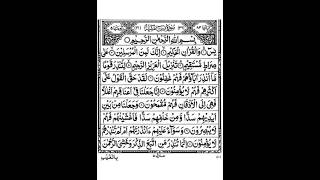 بِسْمِ اللهِ الرَّحْمٰنِ الرَّحِيْمِ
يٰسٓ ۝ وَالْقُرْاٰنِ الْحَكِيْمِ ۝ اِنَّكَ لَمِنَ الْمُرْسَلِيْنَ ۝ عَلٰى
صِرَاطٍ مُّسْتَقِيْمٍ ۝ تَنْزِيْلَ الْعَزِيْزِ الرَّحِيْمِ ۝ لِتُنْذِرَ قَوْمًا
مَّآ اُنْذِرَ اٰبَآؤُهُمْ فَهُمْ غٰفِلُوْنَ ۝ لَقَدْ حَقَّ الْقَوْلُ عَلٰٓى
اَكْثَرِهِمْ فَهُمْ لَا يُؤْمِنُوْنَ ۝ اِنَّا جَعَلْنَا فِيْٓ اَعْنَاقِهِمْ اَغْلٰلًا
فَهِيَ اِلَى الْاَذْقَانِ فَهُمْ مُّقْمَحُوْنَ ۝ وَجَعَلْنَا مِنْۢ بَيْنِ
اَيْدِيْهِمْ سَدًّا وَّمِنْ خَلْفِهِمْ سَدًّا فَاَغْشَيْنٰهُمْ فَهُمْ
لَا يُبْصِرُوْنَ ۝ وَسَوَآءٌ عَلَيْهِمْ ءَاَنْذَرْتَهُمْ اَمْ لَمْ تُنْذِرْهُمْ
لَا يُؤْمِنُوْنَ ۝ اِنَّمَا تُنْذِرُ مَنِ اتَّبَعَ الذِّكْرَ وَخَشِيَ الرَّحْمٰنَ
بالغيب